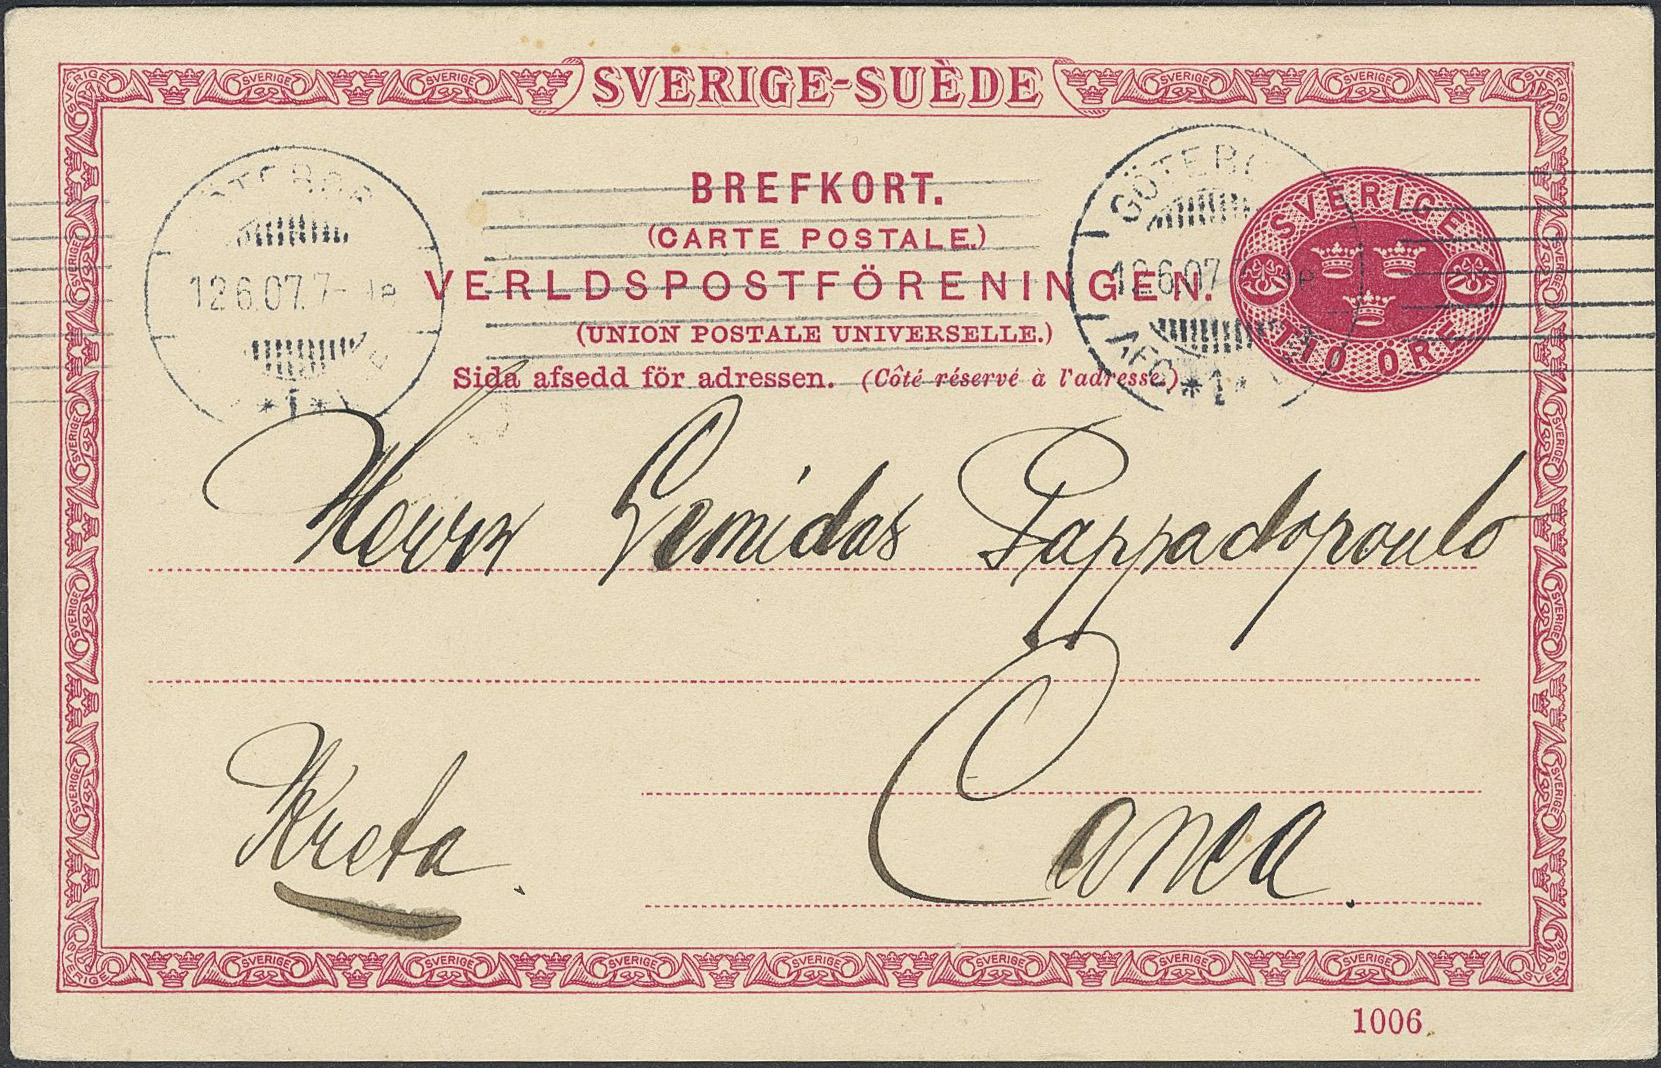 SVERIGE-SUÈDE
BREFKORT.
(CARTE POSTALE.)
VERLDSPOSTFÖRENINGEN.
(UNION POSTALE UNIVERSELLE.)
Sida afsedd för adressen. (Côté réservé à l'adresse.)
SVERIGE
TIO ÖRE
GÖTEBORG
12.6.07.7
*1*
GÖTEBO
12.6.07
*1*
Herrn Leonidas Pappadopoulo
Canea.
Kreta.
1006.